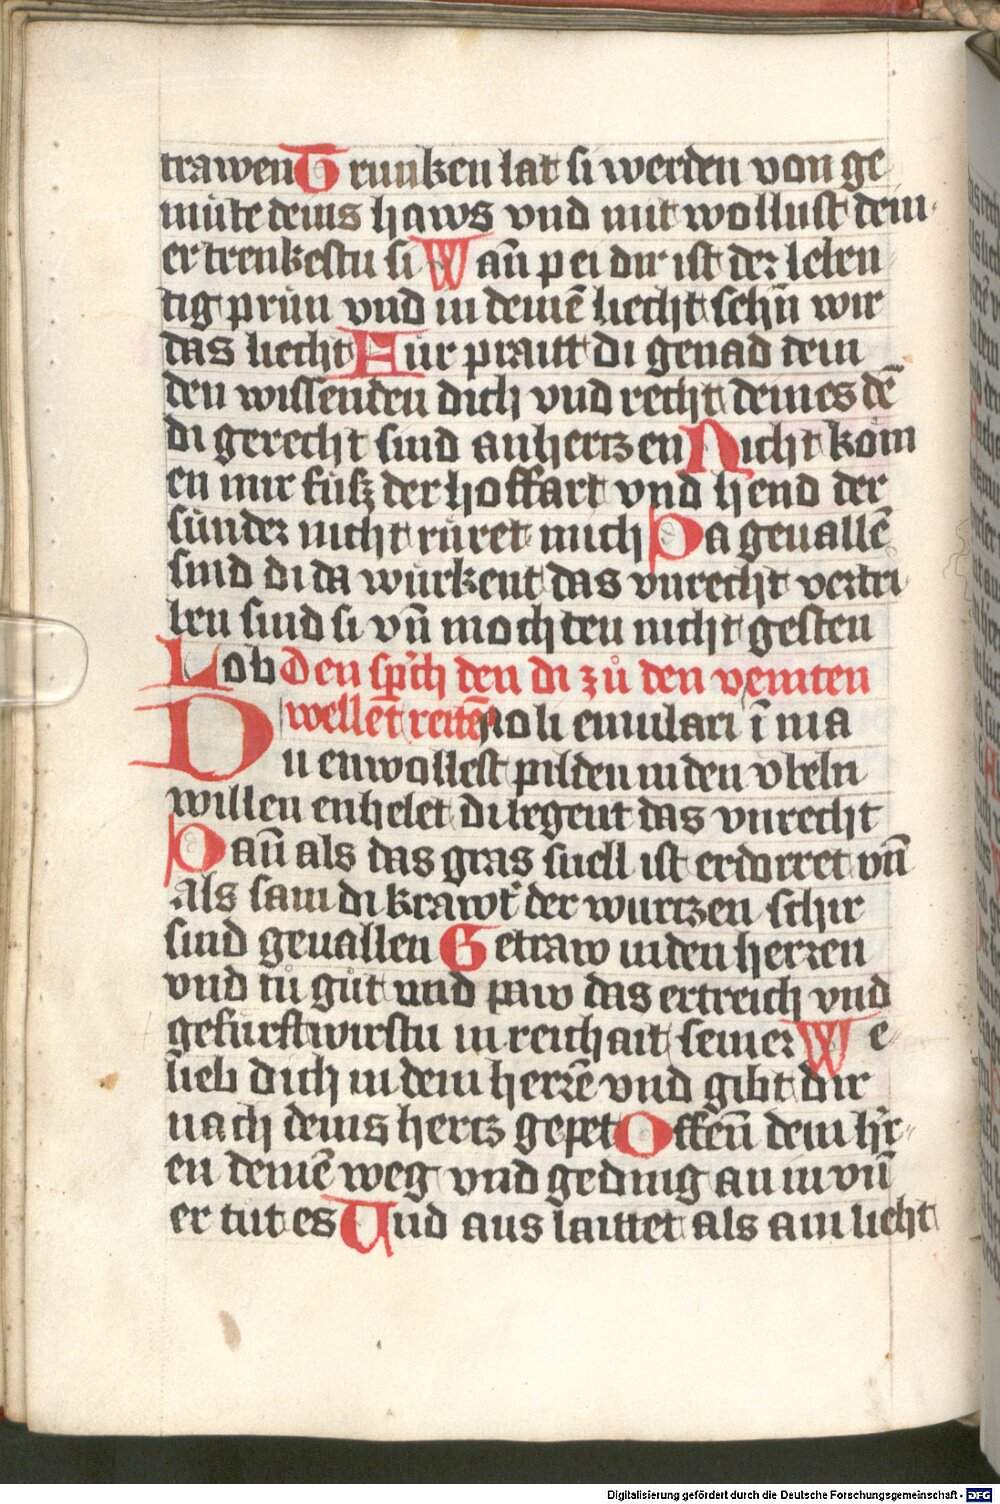 trawen Trunken lat si werden von ge
mute deins haws vnd mit wollust dein
er trenkestu si Wañ pei dir ist der leben
tig prun vnd in deinē liecht sehn wir
das liecht Fur praitt di genad dein
den wissenden dich vnd recht deines dē
di gerecht sind an hertzen Nicht kom
en mir fusz der hoffart vnd hend der
sunder nicht ruret mich Da geuallē
sind di da wurkent das vnrecht vertri
ben sind si vñ mochten nicht gesten
Lob Den spͤch den di zů den veinten
wellēt reitē Noli emulari ī ma
Du enwollest pilden in den vbeln
willen enhelet di legent das vnrecht
Dañ als das gras snell ist erdorret vñ
als sam di krawt der wurtzen schir
sind geuallen Getraw in den herren
vnd tů gůt vnd paw das ertreich vnd
gefurst wirstu in reichait seiner We
sieb dich in dem herrē vnd gibt dir
nach deins hertz gepet Offeñ dem hr̄
en deinē weg vnd geding an in vñ
er tut es Und aus lautet als am liecht
Digitalisierung gefördert durch die Deutsche Forschungsgemeinschaft - DFG